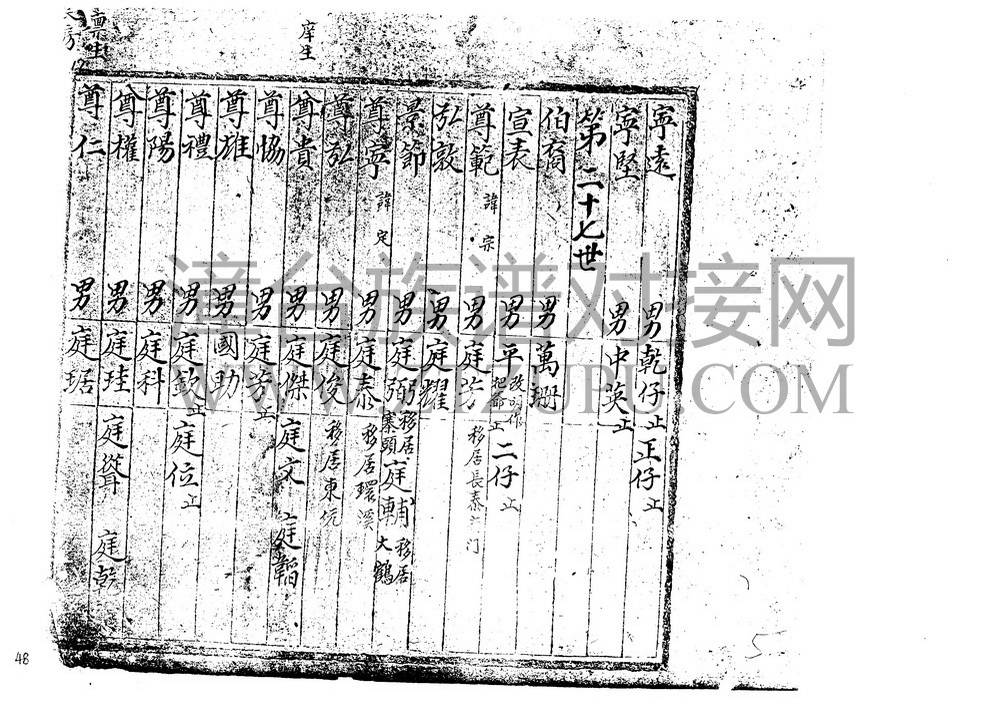 寧遠 男 乾仔 止 正仔 止
寧堅 男 中英 止
第二十七世
伯裔 男 萬珊
宣表 男 平 改 作 把爺 止 二仔 止
尊範 諱宗 男 庭芳 移居長泰 门
弘敦 男 庭耀
景節 男 庭弼 移居寨頭 庭輔 移居大鶴
尊寧 諱定 男 庭泰 移居環溪
尊弘 男 庭俊 移居東坑
庠生
尊貴 男 庭傑 庭文 庭韜
尊協 男 庭芳 止
尊雄 男 國助
尊禮 男 庭欽 止 庭位 止
尊陽 男 庭科
尊權 男 庭珪 庭聳 庭乾
廩生
尊仁 男 庭琚
漳台族谱对接网
48
5